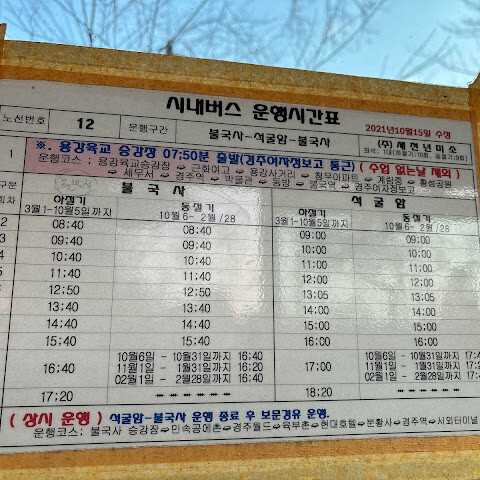 시내버스 운행시간표
2021년10월15일 수정
노선번호 12 운행구간 불국사-석굴암-불국사 (주) 새천년미소
1 ※. 용강육교 승강장 07:50분 출발(경주여자정보고 통근) ( 수업 없는날 제외 )
운행코스 : 용강육교승강장 ➭ 구황여고 ➭ 용강사거리 ➭ 청우아파트 ➭ 계림중 ➭ 황성공원
➭ 세무서 ➭ 경주역 ➭ 박물관 ➭ 동방 ➭ 불국역 ➭ 경주여자정보고
구분 불국사 석굴암
회차 하절기 동절기 하절기 동절기
3월1-10월5일까지 10월6 - 2월/28 3월1-10월5일까지 10월6- 2월/28
2 08:40 08:40 09:00 09:00
3 09:40 09:40 10:00 10:00
4 10:40 10:40 11:00 11:00
5 11:40 11:40 12:00 12:00
6 12:50 12:50 13:05 13:05
13:40 13:40 14:00 14:00
14:40 14:40 15:00 15:00
15:40 15:40 16:00 16:00
16:40 10월6일 - 10월31일까지 16:40 17:00 10월6일 - 10월31일까지 17:4
11월1일 - 1월31일까지 16:20 11월1일 - 1월31일까지
02월1일 - 2월28일까지 16:40 02월1일 - 2월28일까지 17:4
17:20 ------ 18:20 ------
( 상시 운행 ) 석굴암-불국사 운행 종료 후 보문경유 운행.
운행코스: 불국사 승강장➭민속공예촌➭경주월드➭육부촌➭현대호텔➭분황사➭경주역➭시외터미널